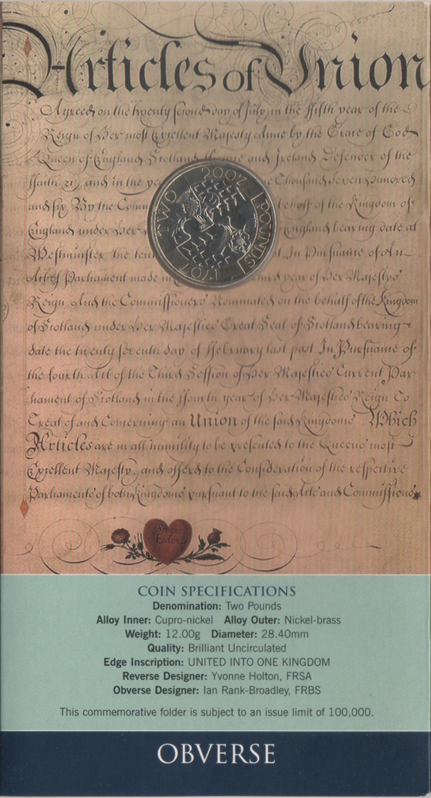 Articles of Union
Agreed on the twenty second day of July, in the fifth year of the
Reign of Her most Excellent Majesty Anne by the Grace of God
Queen of England, Scotland, and Ireland, Defender of the
Faith &c. and in the year Thousand Seven Hundred
and six, By the Comm behalf of the Kingdom of
England under Her England bearing date at
Westminster the ten In Pursuance of An
Act of Parliament made in year of Her Majestys
Reign And the Commissioners Nominated on the behalf of the Kingdom
of Scotland under Her Majesties Great Seal of Scotland bearing
date the twenty seventh day of February last past In Pursuance of
the fourth Act of the Third Session of Her Majesties Current Par-
liament of Scotland in the fourth year of Her Majesties Reign To
Treat of and Concerning an Union of the said Kingdoms Which
Articles are in all humility to be presented to the Queens most
Excellent Majesty, and offered to the Consideration of the respective
Parliaments of both Kingdoms pursuant to the said Acts and Commissions
TWO 2007 POUNDS
1707
COIN SPECIFICATIONS
Denomination: Two Pounds
Alloy Inner: Cupro-nickel Alloy Outer: Nickel-brass
Weight: 12.00g Diameter: 28.40mm
Quality: Brilliant Uncirculated
Edge Inscription: UNITED INTO ONE KINGDOM
Reverse Designer: Yvonne Holton, FRSA
Obverse Designer: Ian Rank-Broadley, FRBS
This commemorative folder is subject to an issue limit of 100,000.
OBVERSE